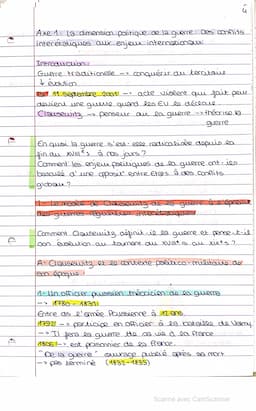 4
Axe 1: La dimension politique de la guerre: Des conflits
interétatiques aux enjeux internationaux
Introduction:
Guerre traditionnelle --> conquérir du territoire
↳ évolution
Ex: 11 septembre 2001 --> acte violent qui fait peur
devient une guerre quand les EU la déclare
Clausewitz --> penseur de la guerre --> théorise la
guerre
En quoi la guerre s'est-elle radicalisée depuis la
fin du XVIIIe s à nos jours?
Comment les enjeux politiques de la guerre ont-ils
basculé d'une opposit° entre états à des conflits
globaux?
1. Le modèle de Clausewitz de la guerre à l'épreuve
des guerres interétatiques
Comment Clausewitz définit-il la guerre et pense-t-il
son évolution au tournant du XVIIIe s au XIXe s?
A- Clausewitz et le contexte politico-militaire de
son époque:
1- Un officier prussien théoricien de la guerre
--> 1780-1831:
Entre ds l'armée Prussienne à 12 ans.
1792 --> participe en officier à la bataille de Valmy.
--> Il fera la guerre de sa vie à la France
1806: --> est prisonnier de la France.
"De la guerre" ouvrage publié après sa mort
--> pas terminé (1832-1835)
Scanné avec CamScanner